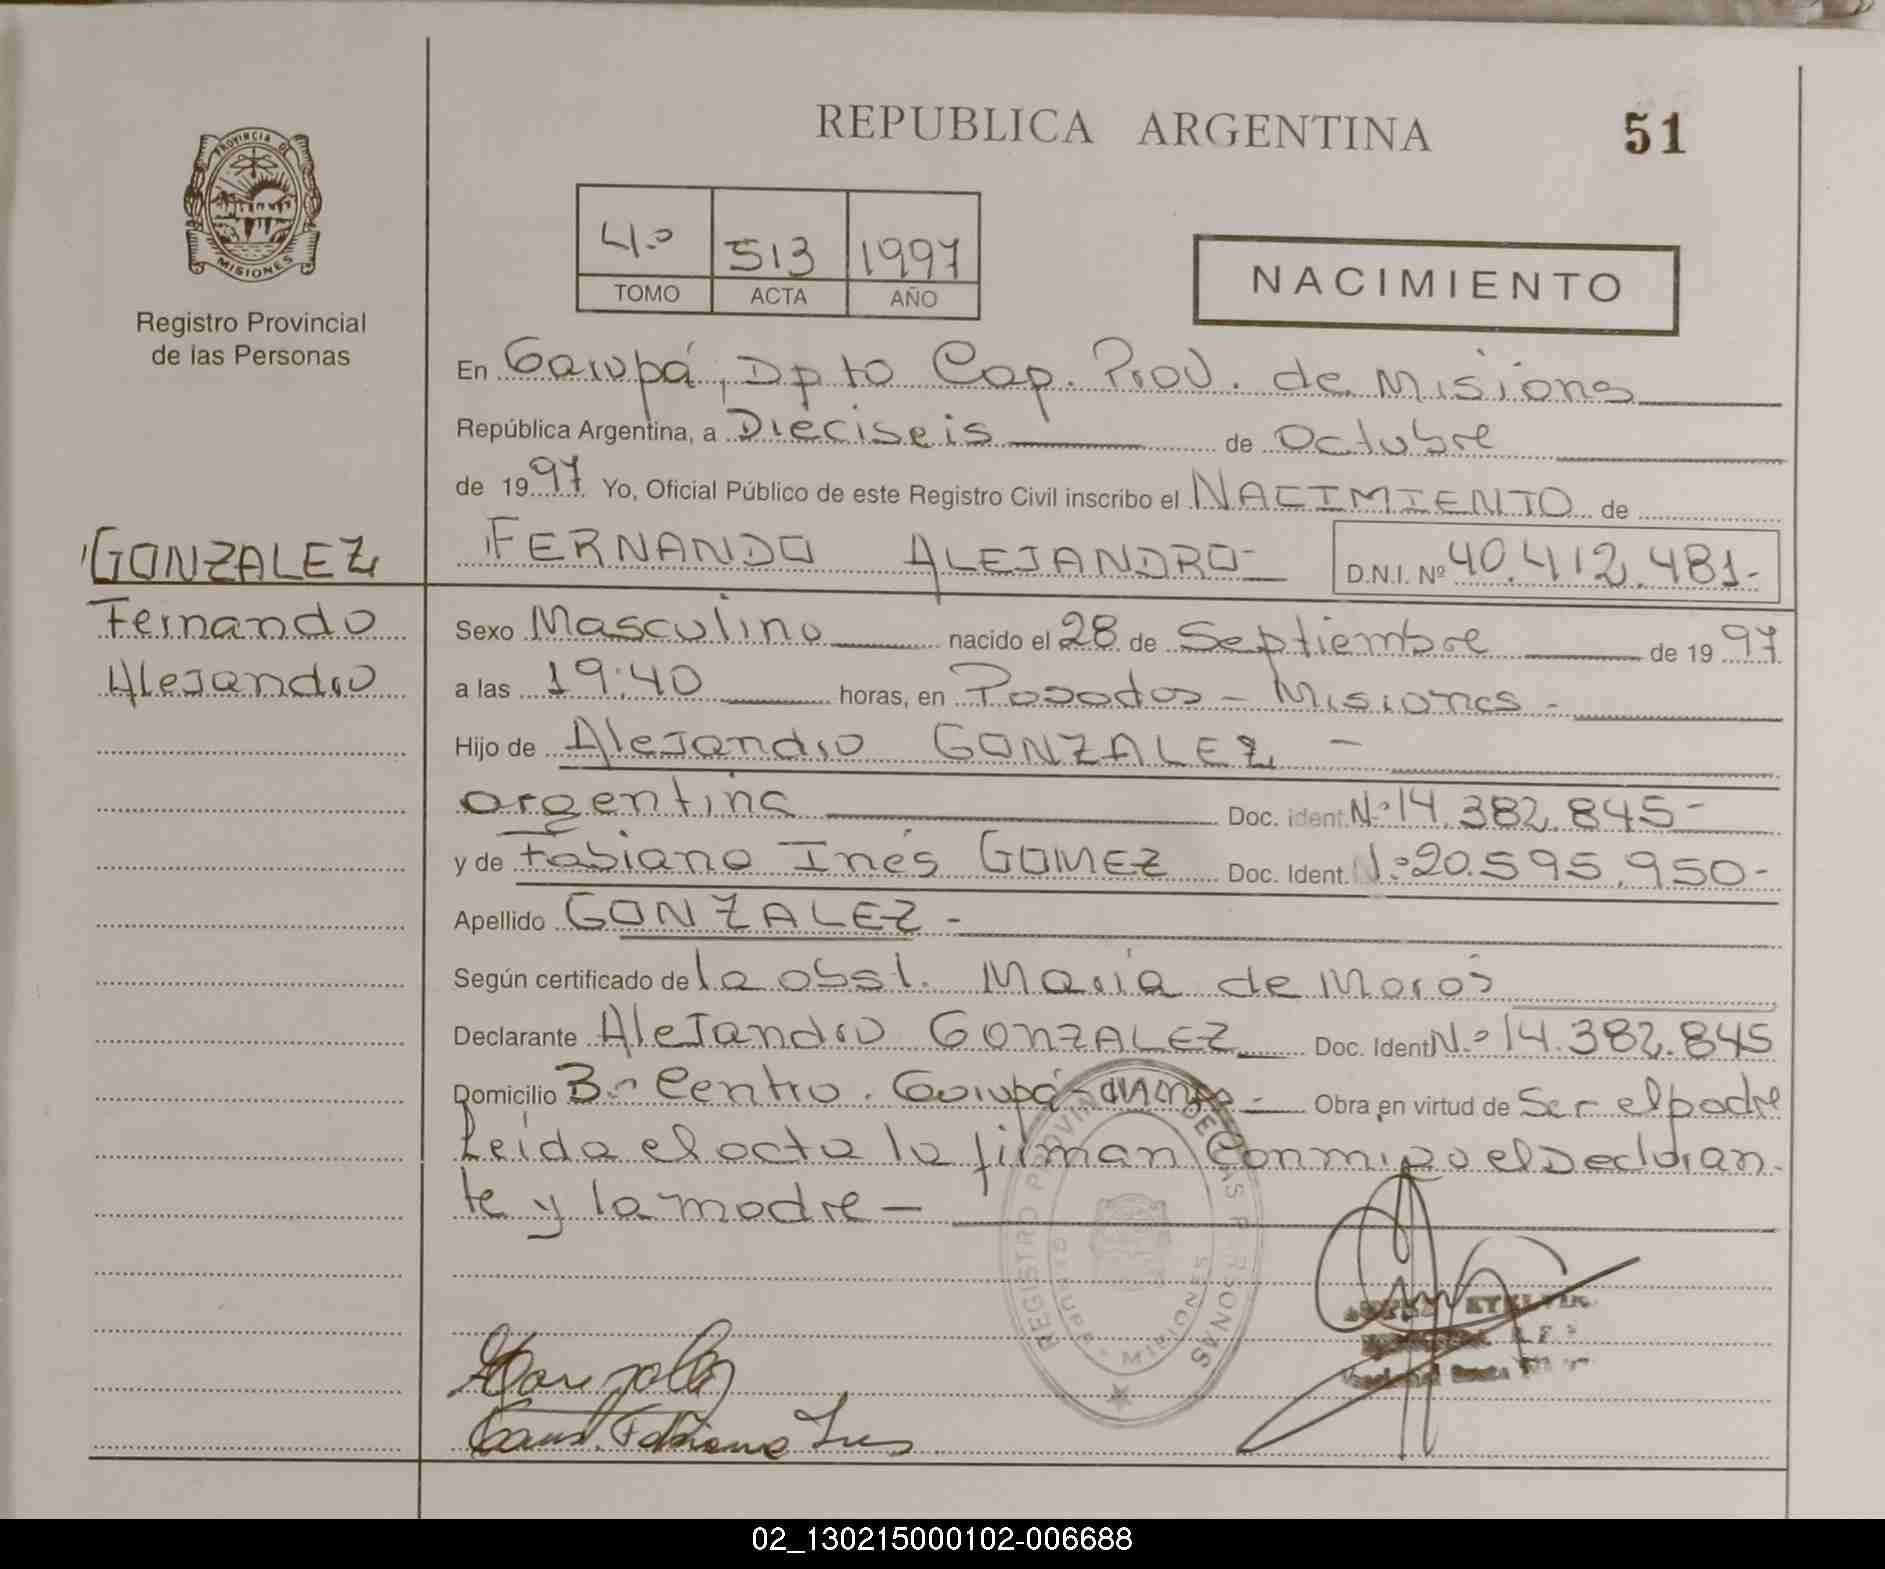 REPUBLICA ARGENTINA
51
PROVINCIA DE
MISIONES
Registro Provincial
de las Personas
4º 513 1997
TOMO ACTA AÑO
NACIMIENTO
En Garupá, Dpto Cap. Prov. de Misiones
República Argentina, a Dieciseis de Octubre
de 1997 Yo, Oficial Público de este Registro Civil inscribo el NACIMIENTO de
GONZALEZ
FERNANDO ALEJANDRO- D.N.I. Nº 40.412.481.-
Fernando
Alejandro
Sexo Masculino nacido el 28 de Septiembre de 1997
a las 19:40 horas, en Posadas - Misiones -
Hijo de Alejandro GONZALEZ -
argentina Doc. ident. Nº 14.382.845-
y de Fabiana Inés GOMEZ Doc. Ident. Nº 20.595.950-
Apellido GONZALEZ -
Según certificado de la obst. María de
Declarante Alejandro GONZALEZ Doc. Ident Nº 14.382.845
Domicilio Bº Centro. Garupá - Obra en virtud de Ser el padre
Leída el acta la firman conmigo el Declaran-
te y la madre -
REGISTRO PROVINCIAL DE LAS PERSONAS
MISIONES
Fabiana Ines
02_130215000102-006688